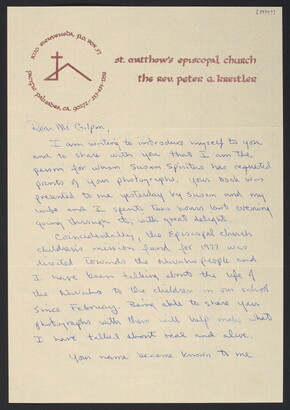 [1977]
1030 Bienveneda, P.O. Box 37
Pacific Palisades, CA. 90272
st. matthew's episcopal church
the rev. peter g. kreitler
Dear Ms. Gilpin,
I am writing to introduce myself to you
and to share with you that I am the
person for whom Susan Spiritus has requested
prints of your photographs. Your book was
presented to me yesterday by Susan and my
wife and I spent two hours last evening
going through it, with great delight.
Coincidentally, the Episcopal church
children's mission fund for 1977 was
directed towards the Navaho people and
I have been talking about the life of
the Navaho to the children in our school
since February. Being able to share your
photographs with them will help make what
I have talked about real and alive.
Your name became known to me